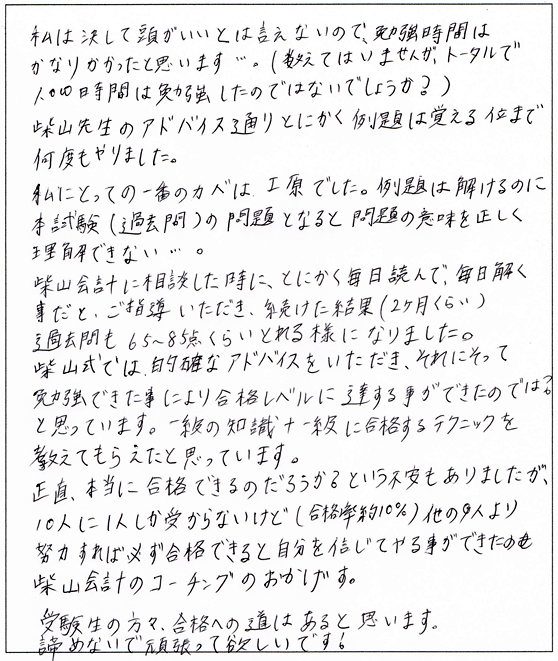 私は決して頭がいいとは言えないので、勉強時間は
かなりかかったと思います…。(数えてはいませんが、トータルで
1000時間は勉強したのではないでしょうか?)
柴山先生のアドバイス通りとにかく例題は覚える位まで
何度もやりました。
私にとっての一番のカベは、工原でした。例題は解けるのに
本試験(過去問)の問題となると問題の意味を正しく
理解できない…。
柴山会計に相談した時に、とにかく毎日読んで、毎日解く
事だと、ご指導いただき、続けた結果(2ヶ月くらい)
過去問も65~85点くらいとれる様になりました。
柴山式では、的確なアドバイスをいただき、それにそって
勉強できた事により合格レベルに達する事ができたのでは?
と思っています。一級の知識+一級に合格するテクニックを
教えてもらえたと思っています。
正直、本当に合格できるのだろうか?という不安もありましたが、
10人に1人しか受からないけど(合格率約10%)他の9人より
努力すれば必ず合格できると自分を信じてやる事ができたのも
柴山会計のコーチングのおかげす。
受験生の方々、合格への道はあると思います。
諦めないで頑張って欲しいです!